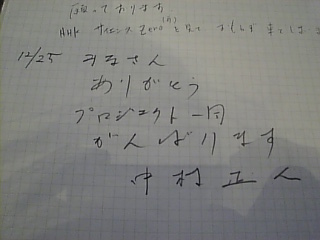 願っております
NHK サイエンスZero を見て
12/25 みなさん
ありがとう
プロジェクト一同
がんばります
中村正人